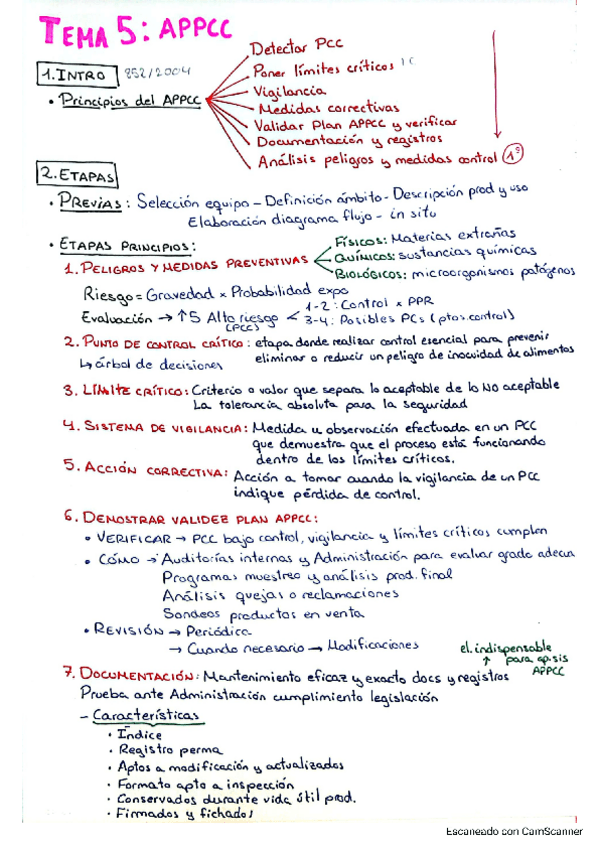 TEMA 5: APPCC
1. INTRO 852/2004
• Principios del APPCC
Detectar PCC
Poner límites críticos
Vigilancia
Medidas correctivas
Validar Plan APPCC y verificar
Documentación y registros
Análisis peligros y medidas control 1º
2. ETAPAS
• PREVIAS: Selección equipo - Definición ámbito - Descripción prod y uso
Elaboración diagrama flujo - in situ
• ETAPAS PRINCIPIOS:
1. PELIGROS Y MEDIDAS PREVENTIVAS
Físicos: Materias extrañas
Químicos: sustancias químicas
Biológicos: microorganismos patógenos
Riesgo = Gravedad x Probabilidad expo
Evaluación → ↑5 Alto riesgo (PCC) < 1-2: Control x PPR
3-4: Posibles PCs (ptos. control)
2. PUNTO DE CONTROL CRÍTICO: etapa donde realizar control esencial para prevenir
eliminar o reducir un peligro de inocuidad de alimentos
↳ árbol de decisiones
3. LÍMITE CRÍTICO: Criterio o valor que separa lo aceptable de lo NO aceptable
La tolerancia absoluta para la seguridad
4. SISTEMA DE VIGILANCIA: Medida u observación efectuada en un PCC
que demuestra que el proceso está funcionando
dentro de los límites críticos.
5. ACCIÓN CORRECTIVA: Acción a tomar cuando la vigilancia de un PCC
indique pérdida de control.
6. DEMOSTRAR VALIDEZ PLAN APPCC:
• VERIFICAR → PCC bajo control, vigilancia y límites críticos cumplen
• CÓMO → Auditorías internas y Administración para evaluar grado adecua
Programas muestreo y análisis prod. final
Análisis quejas o reclamaciones
Sondeos productos en venta
• REVISIÓN → Periódica
→ Cuando necesario → Modificaciones
el. indispensable
↑ para ap. sis
APPCC
7. DOCUMENTACIÓN: Mantenimiento eficaz y exacto docs y registros
Prueba ante Administración cumplimiento legislación
- Características
• Índice
• Registro perma
• Aptos a modificación y actualizados
• Formato apto a inspección
• Conservados durante vida útil prod.
• Firmados y fichados
Escaneado con CamScanner